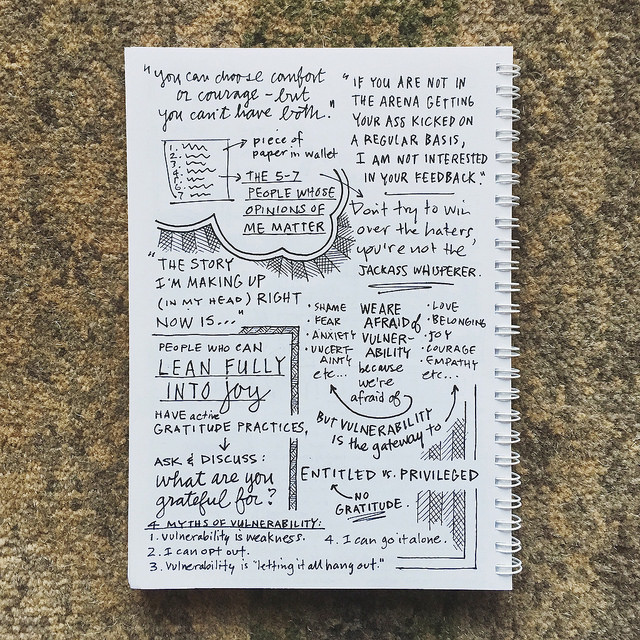 "You can choose comfort
or courage – but
you can't have both."
"IF YOU ARE NOT IN
THE ARENA GETTING
YOUR ASS KICKED ON
A REGULAR BASIS,
I AM NOT INTERESTED
IN YOUR FEEDBACK."
1.
2.
3.
4.
5.
6.
7
piece of
paper in wallet
THE 5-7
PEOPLE WHOSE
OPINIONS OF
ME MATTER
Don't try to win
over the haters,
you're not the
JACKASS WHISPERER.
"THE STORY
I'M MAKING UP
(IN MY HEAD) RIGHT
NOW IS..."
PEOPLE WHO CAN
LEAN FULLY
INTO joy
HAVE active
GRATITUDE PRACTICES,
ASK & DISCUSS:
what are you
grateful for?
• SHAME
• FEAR
• ANXIETY
• UNCERT-
AINTY
etc...
WE ARE
AFRAID of
VULNER-
ABILITY
because
we're
afraid of
• LOVE
• BELONGING
• JOY
• COURAGE
• EMPATHY
etc...
BUT VULNERABILITY
IS the gateway to
ENTITLED vs. PRIVILEGED
NO
GRATITUDE.
4 MYTHS OF VULNERABILITY:
1. Vulnerability is weakness.
2. I can opt out.
3. Vulnerability is "letting it all hang out."
4. I can go it alone.